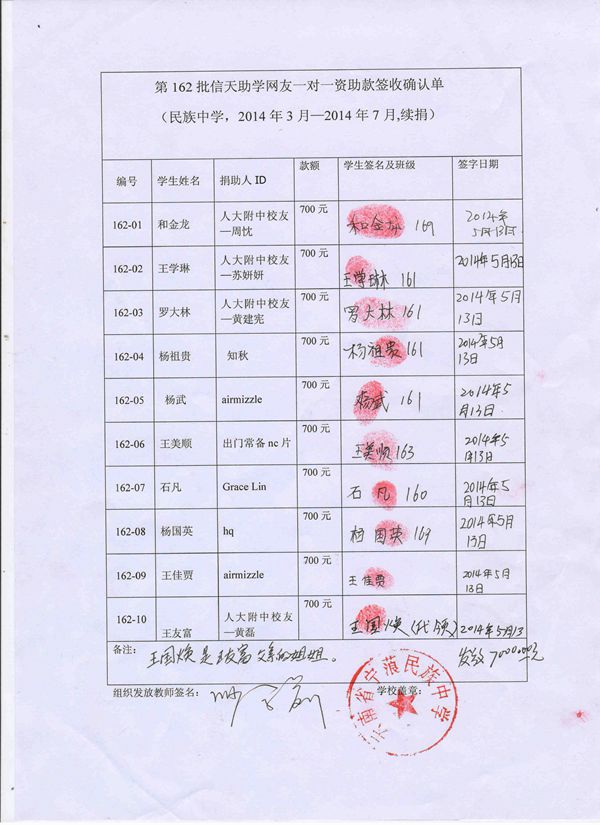 第 162 批信天助学网友一对一资助款签收确认单
（民族中学，2014 年 3 月—2014 年 7 月,续捐）
编号 学生姓名 捐助人 ID 款额 学生签名及班级 签字日期
162-01 和金龙 人大附中校友 700 元 和金龙 169 2014年
—周忱 5月13日
162-02 王学琳 人大附中校友 700 元 王学琳 161 2014年5月13日
—苏妍妍
162-03 罗大林 人大附中校友 700 元 罗大林 161 2014年5月
—黄建宪 13日
162-04 杨祖贵 知秋 700 元 杨祖贵 161 2014年5月
13日
162-05 杨武 airmizzle 700 元 杨武 161 2014年5
月13日
162-06 王美顺 出门常备 nc 片 700 元 王美顺 163 2014年5
月13日
162-07 石凡 Grace Lin 700 元 石凡 160 2014年5
月13日
162-08 杨国英 hq 700 元 杨国英 169 2014年5月
13日
162-09 王佳贾 airmizzle 700 元 王佳贾 2014年5月
13日
162-10 王友富 人大附中校友 700 元 王国焕(代领) 2014年5月13
—黄磊
备注： 王国焕是王友富的姐姐。 发放
组织发放教师签名： 学校盖章：
云南省宁蒗民族中学